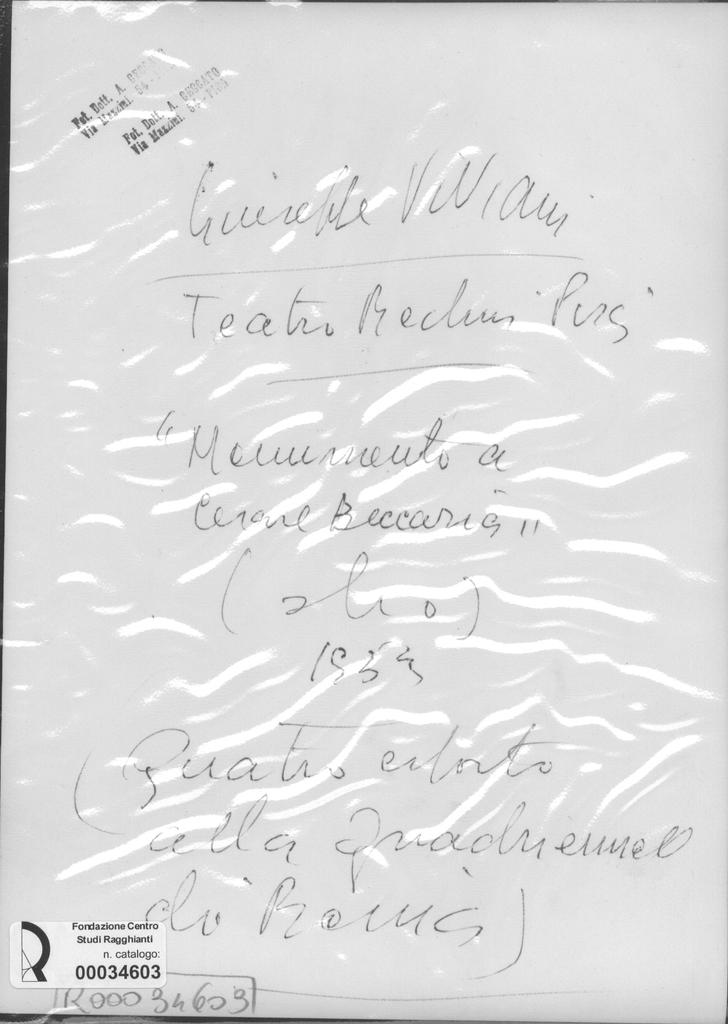 Fot. Dott. A.
Via Mazzini, 54 -
Fot. Dott. A. BESCATO
Via Mazzini, 54 - PISA
Giuseppe Viviani
Teatro Pisa
"Monumento a
Cesare Beccaria"
(olio)
195
(Quadro esposto
alla Quadriennale
di Roma)
Fondazione Centro
Studi Ragghianti
n. catalogo:
00034603
R00034603